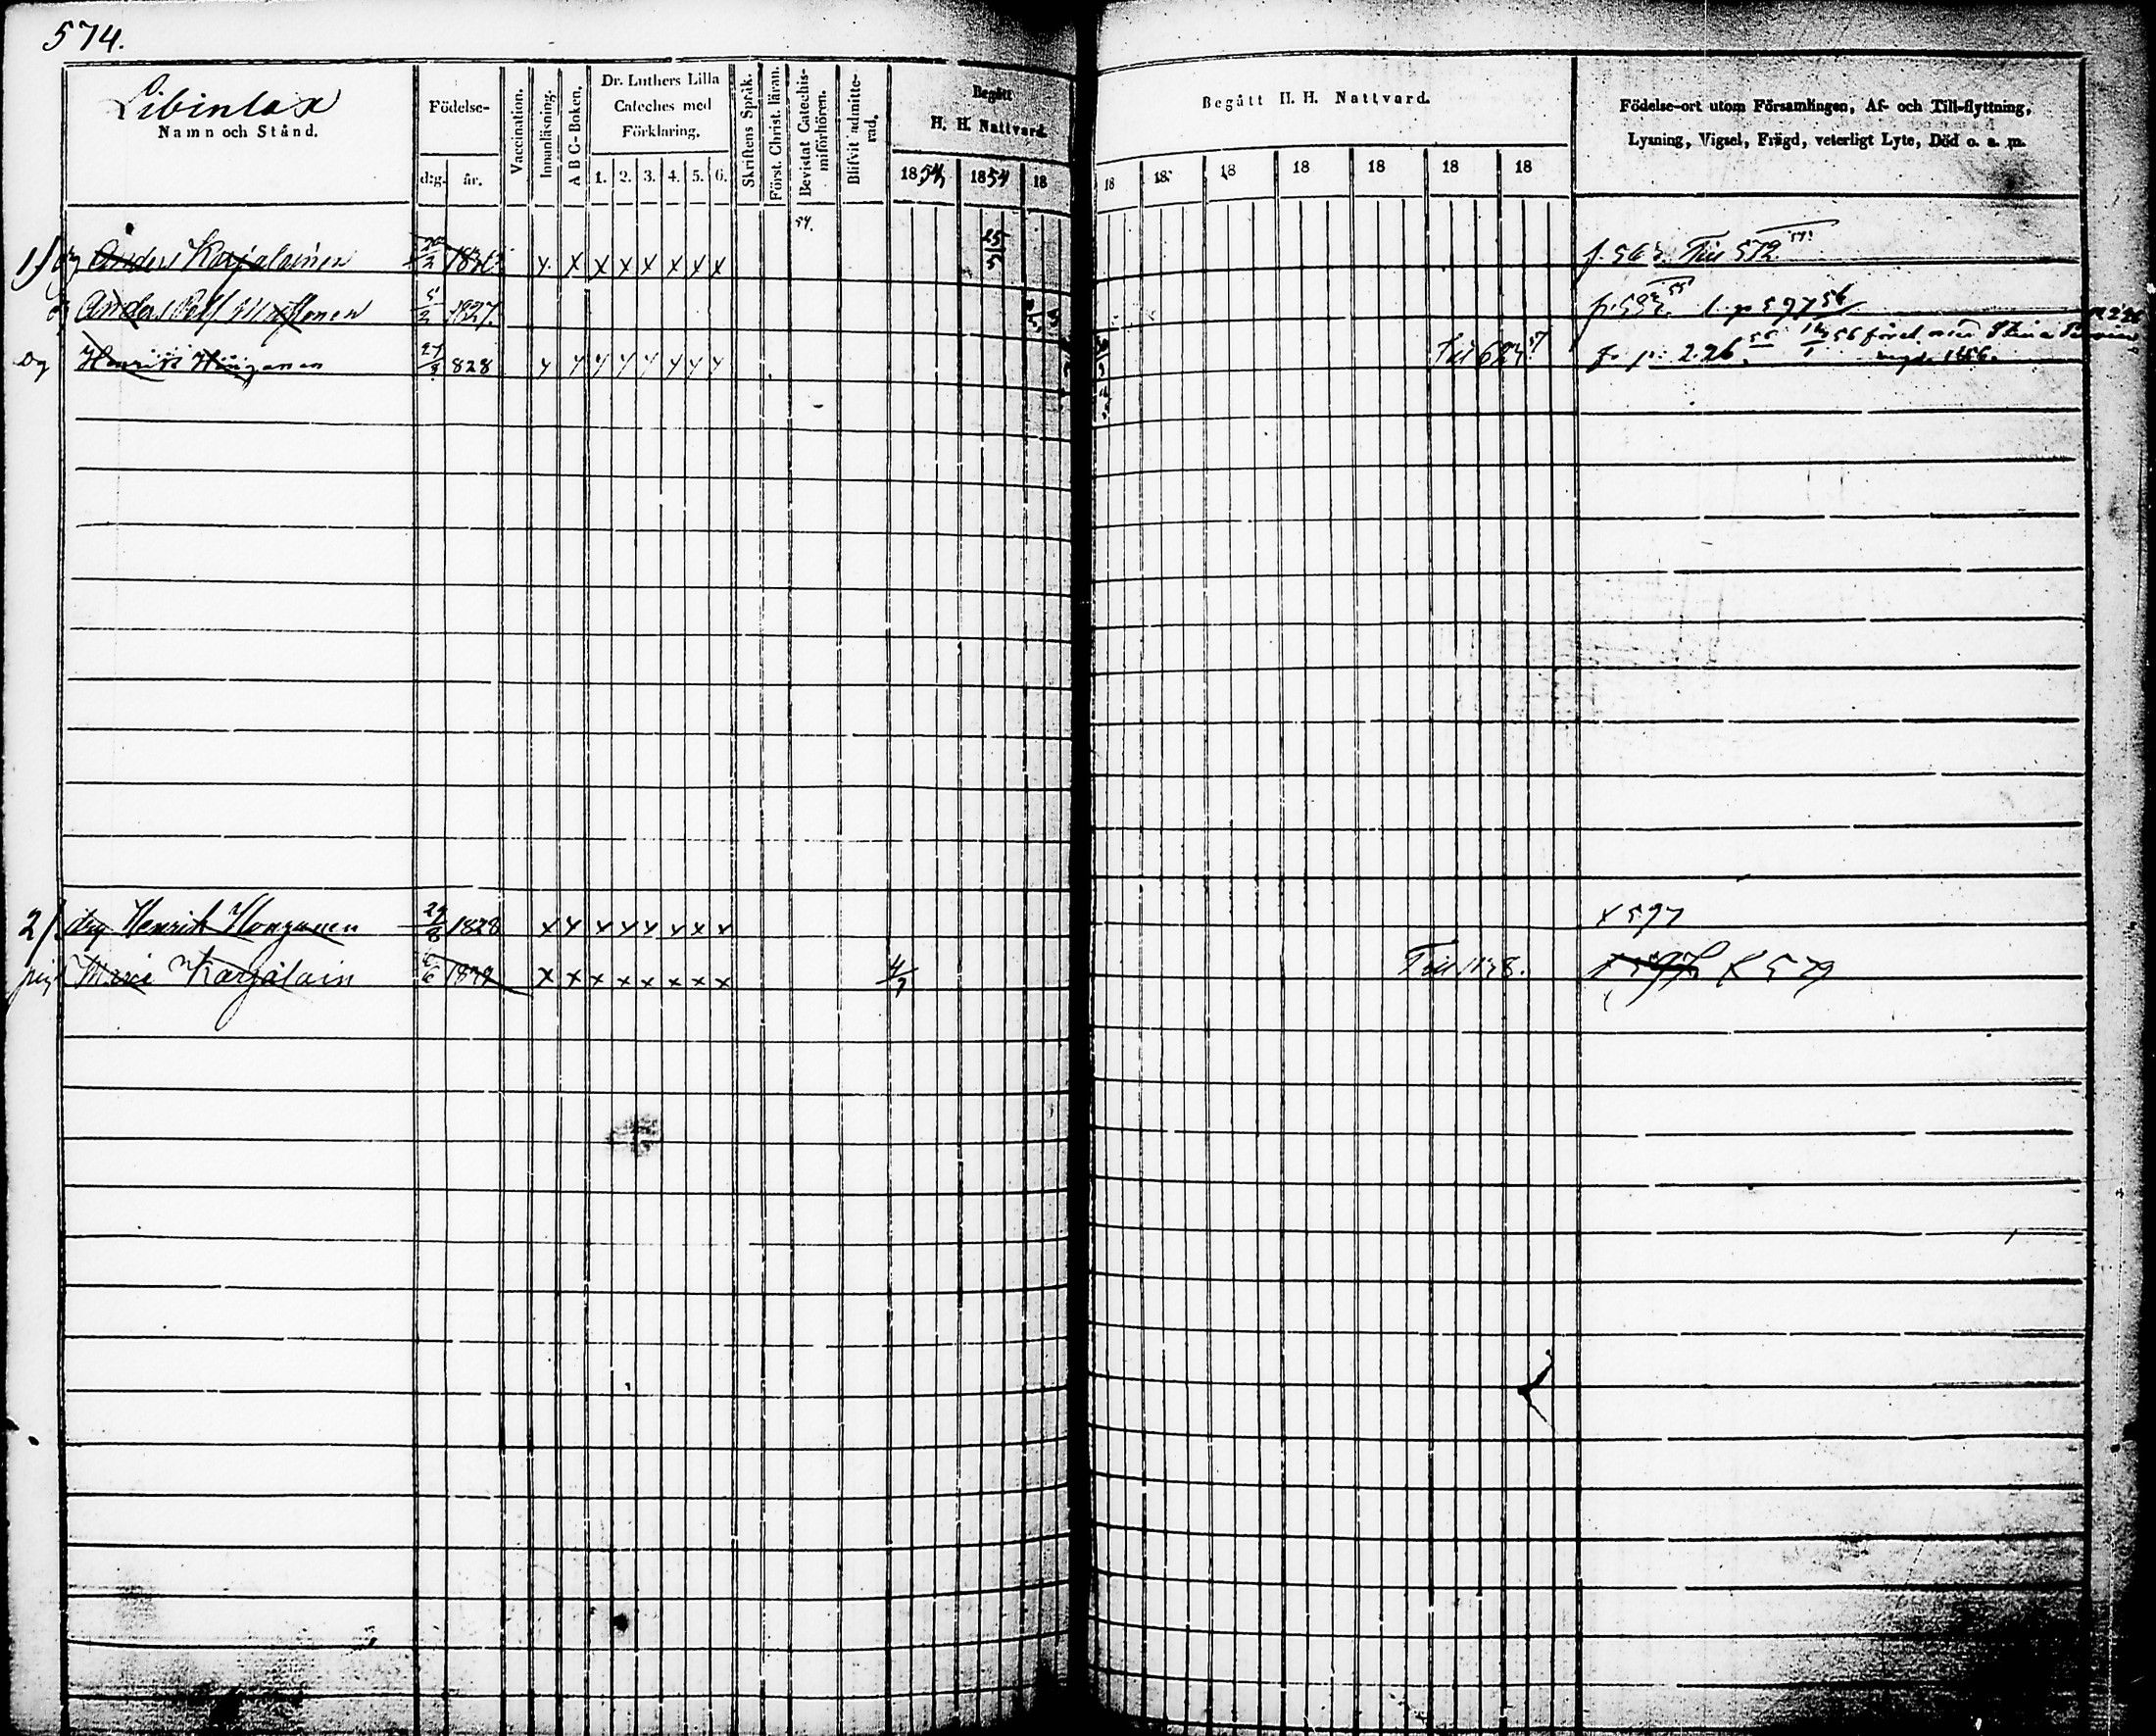 574.
Libinlax
Namn och Stånd.
Födelse-
d:g. år.
Vaccination.
Innanläsning.
A B C-Boken.
Dr. Luthers Lilla
Cateches med
Förklaring.
1. 2. 3. 4. 5. 6.
Skriftens Språk.
Först. Christ. läran.
Bevistat Catechis-
miförhören.
Blifvit admitte-
rad.
Begått
H. H. Nattvard.
1854 1854 18
Begått H. H. Nattvard.
18 18 18 18 18 18 18
Födelse-ort utom Församlingen, Af- och Till-flyttning,
Lysning, Vigsel, Frägd, veterligt Lyte, Död o. s. m.
54.
1/ dg Anders Karjalainen x x x x x x x x 15/5 Till 572
Anders 5/2 1827. 597 56
dg Henrik 27/8 828 x x x x x x x x Till 624 57 p. 226
2/ drg Henrik Honganen 27/8 1828 x x x x x x x x x 597
pig Maria Karjalain x x x x x x x x 4/7 579